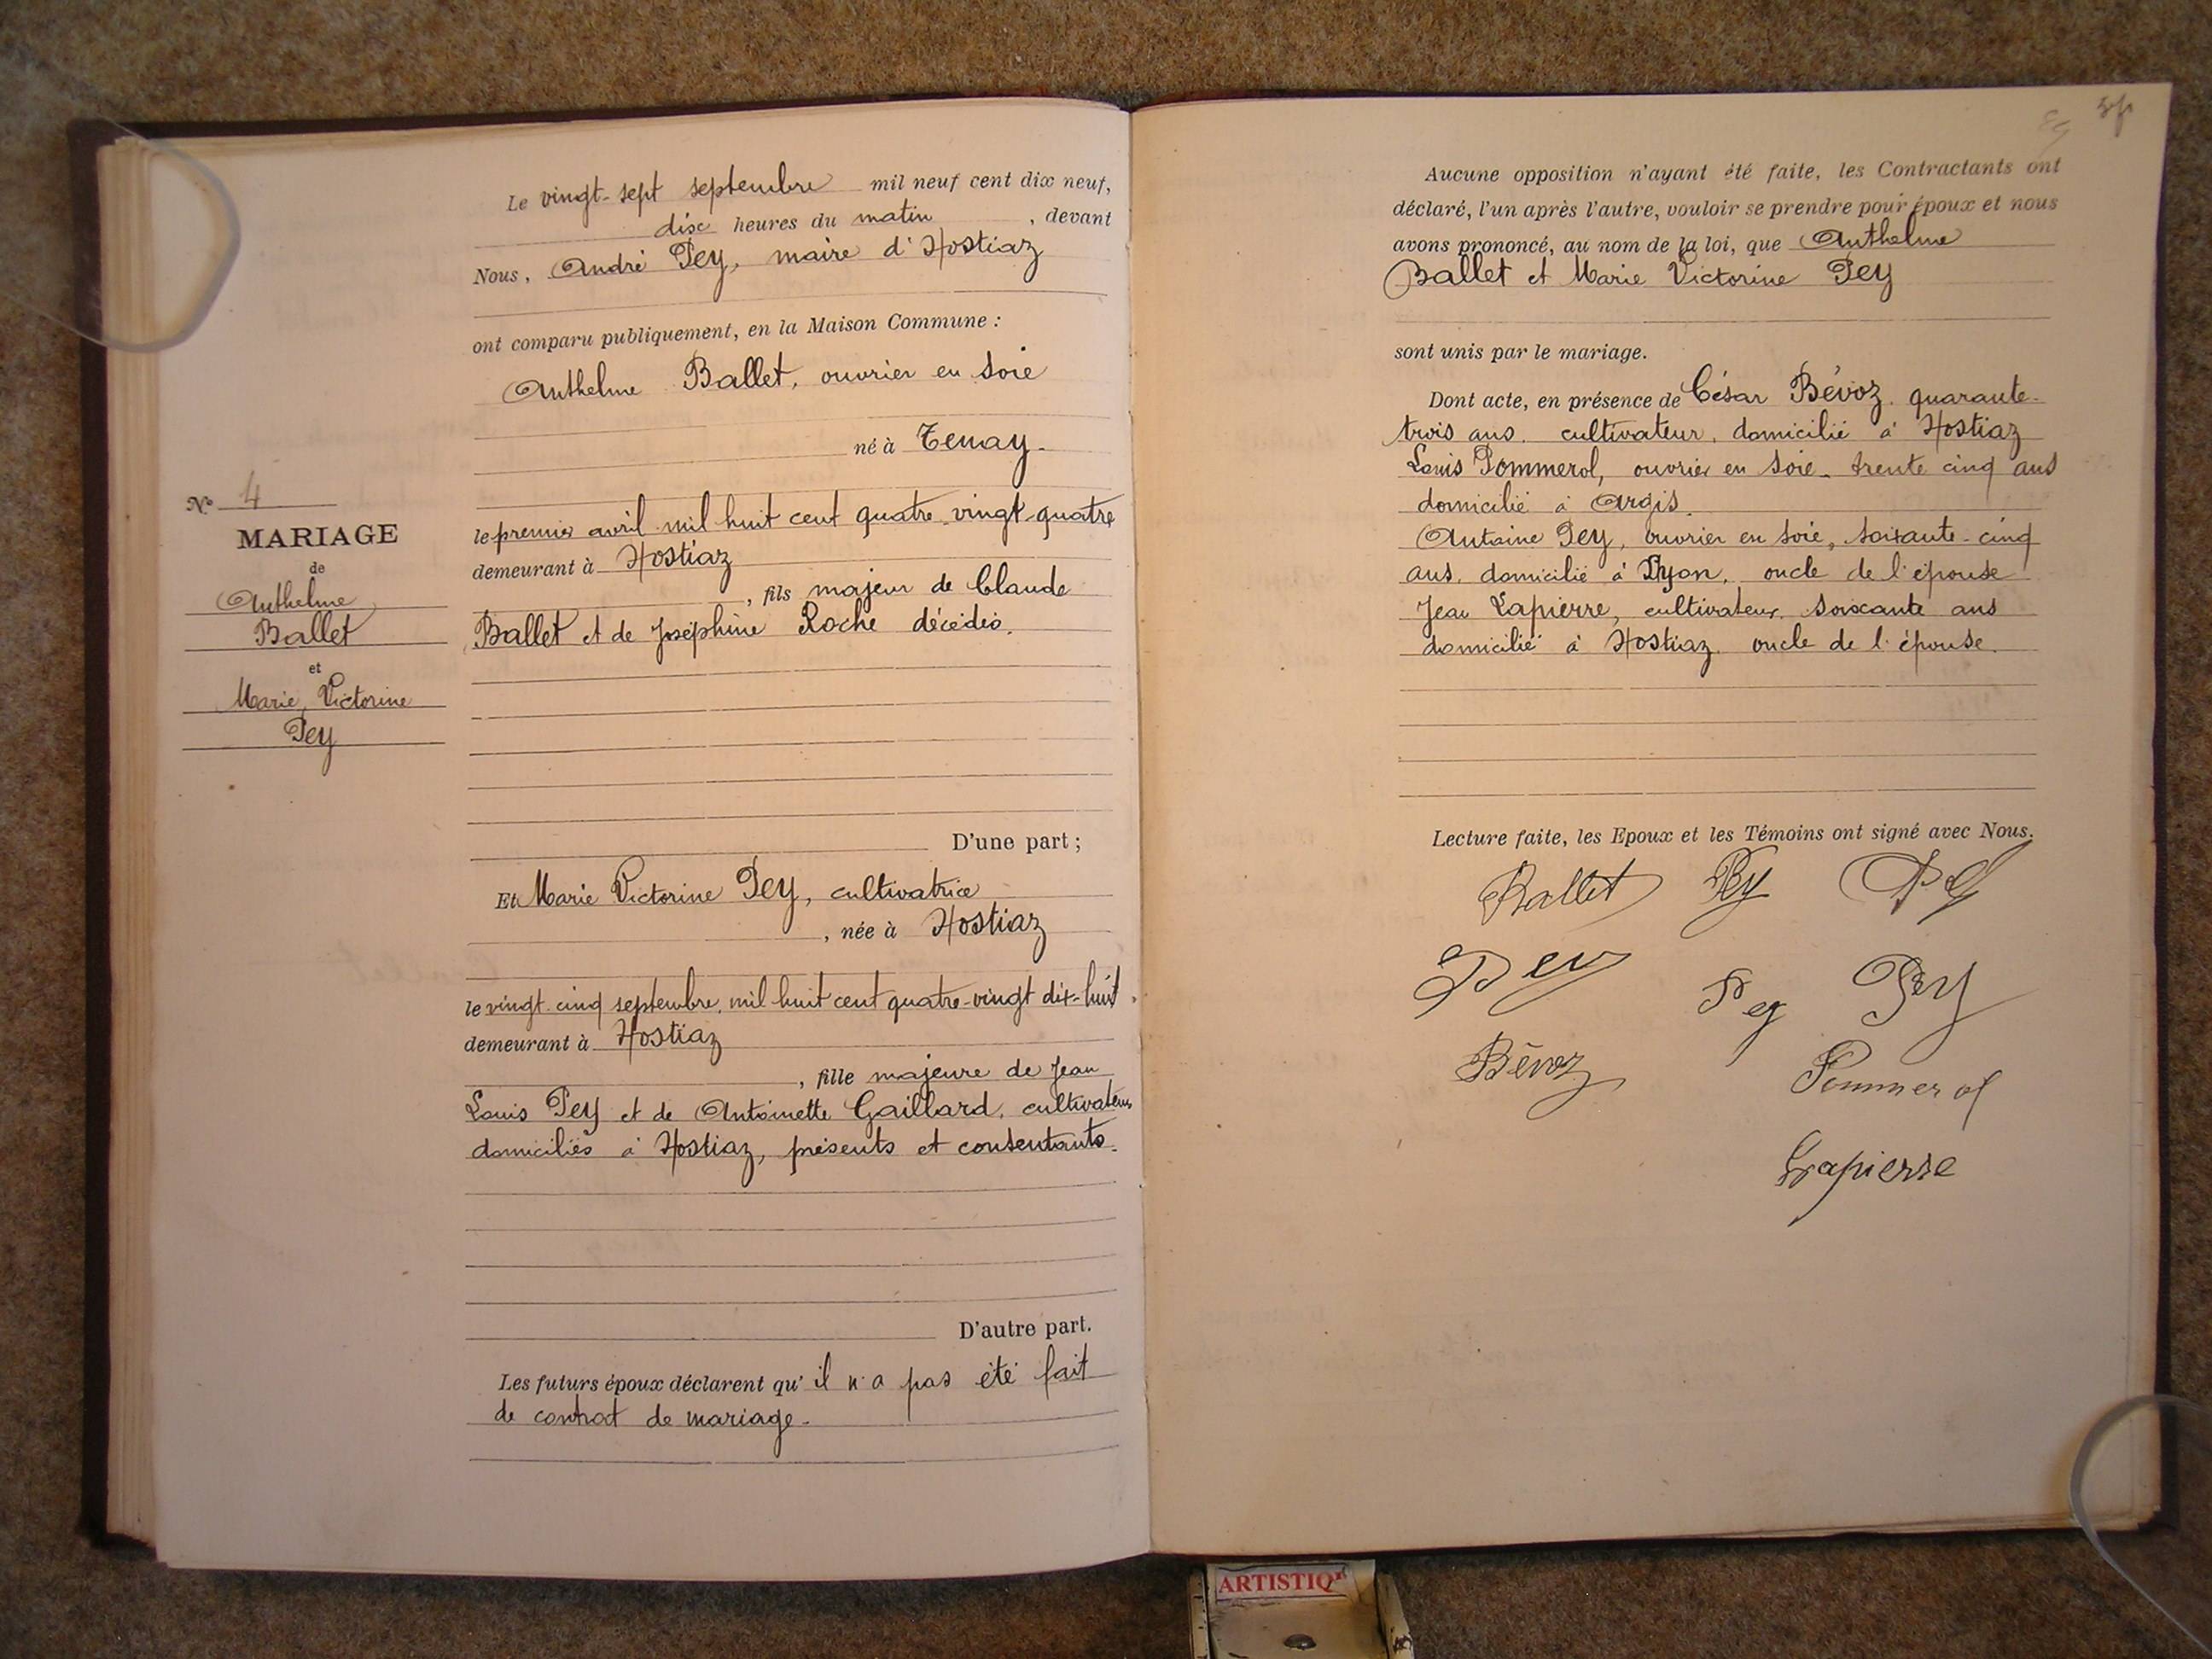 Le vingt-sept septembre mil neuf cent dix neuf,
dix heures du matin, devant
Nous, André Pey, maire d'Hostiaz
ont comparu publiquement, en la Maison Commune :
Anthelme Ballet, ouvrier en soie
né à Tenay.
le premier avril mil huit cent quatre-vingt-quatre
demeurant à Hostiaz
, fils majeur de Claude
Ballet et de Joséphine Roche décédés.
D'une part ;
Et Marie Victorine Pey, cultivatrice
, née à Hostiaz
le vingt-cinq septembre, mil huit cent quatre-vingt dix-huit
demeurant à Hostiaz
, fille majeure de Jean
Louis Pey et de Antoinette Gaillard, cultivateurs
domiciliés à Hostiaz, présents et consentants.
D'autre part.
Les futurs époux déclarent qu'il n'a pas été fait
de contrat de mariage.
N° 4
MARIAGE
de
Anthelme
Ballet
et
Marie, Victorine
Pey
Aucune opposition n'ayant été faite, les Contractants ont
déclaré, l'un après l'autre, vouloir se prendre pour époux et nous
avons prononcé, au nom de la loi, que Anthelme
Ballet et Marie Victorine Pey
sont unis par le mariage.
Dont acte, en présence de César Bévoz. quarante-
trois ans. cultivateur, domicilié à Hostiaz
Louis Pommerol, ouvrier en soie. trente cinq ans
domicilié à Argis.
Antoine Pey, ouvrier en soie, soixante-cinq
ans. domicilié à Lyon. oncle de l'épouse
Jean Lapierre, cultivateur, soixante ans
domicilié à Hostiaz. oncle de l'épouse.
Lecture faite, les Epoux et les Témoins ont signé avec Nous.
Ballet Pey
Pey Pey Pey
Bévoz Pommerol
Lapierre
ARTISTIQ